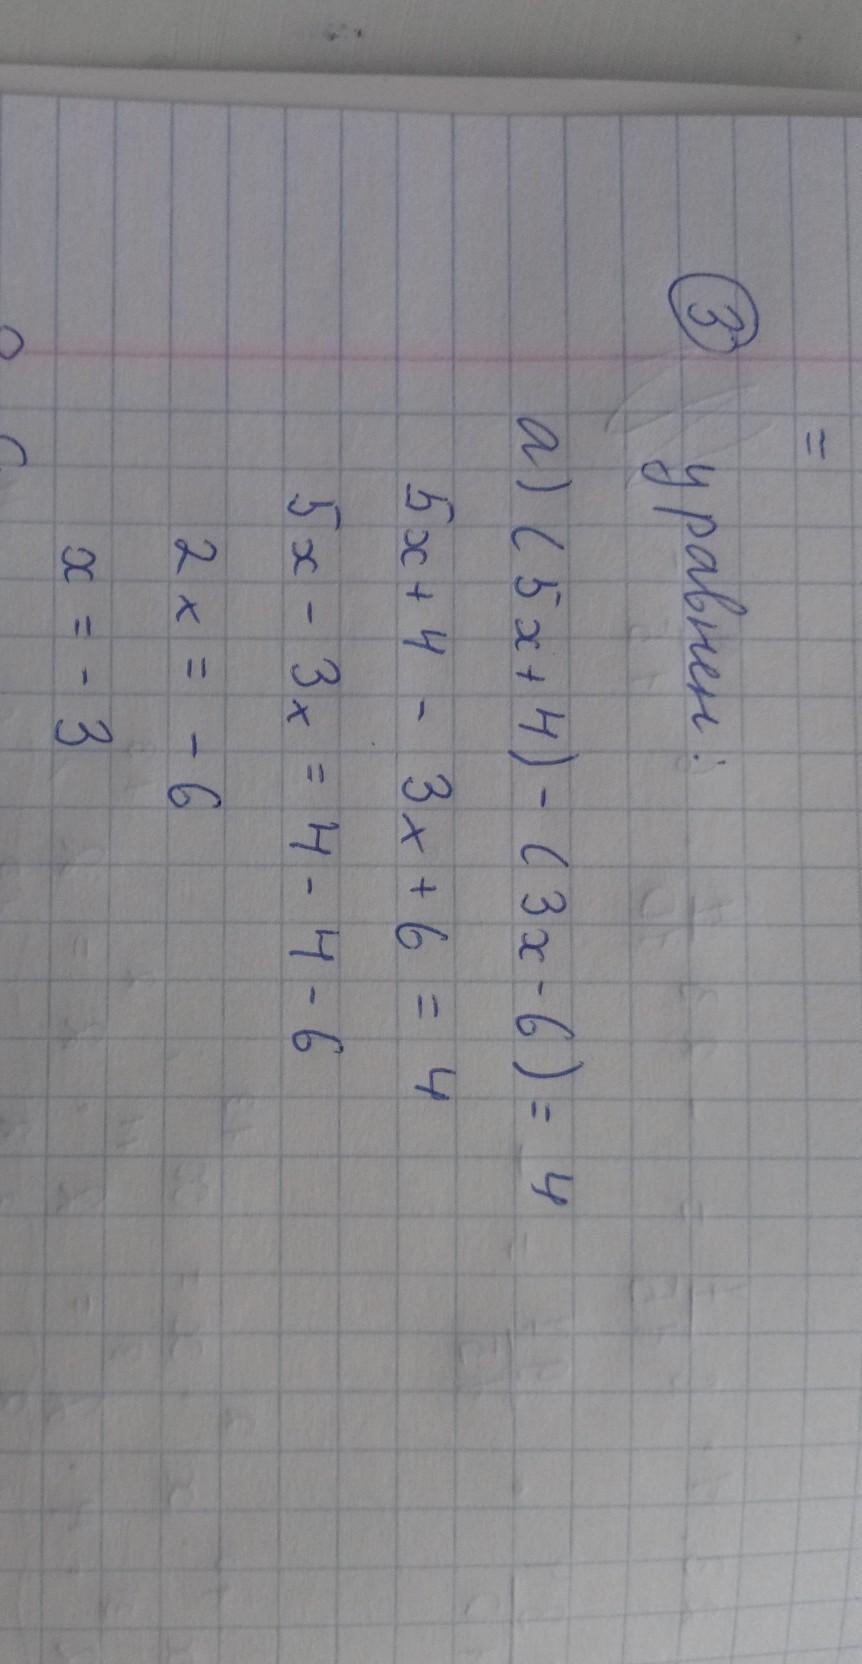 =
③ уравнен:
а) (5x+4)-(3x-6)= 4
5x+4 - 3x+6 = 4
5x-3x=4-4-6
2x= -6
x=-3